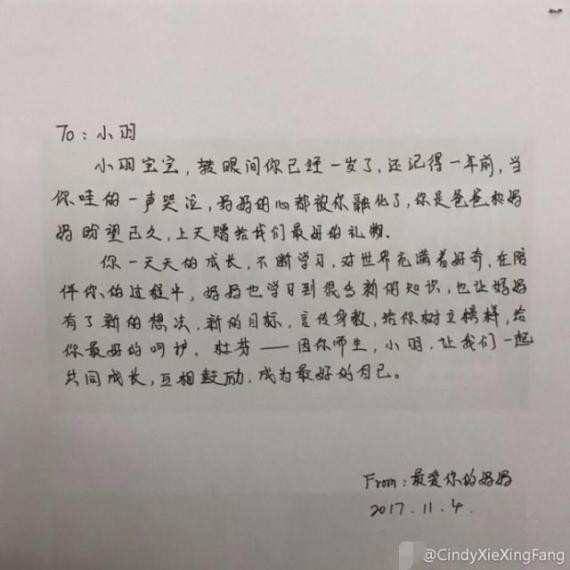 To：小羽
小羽宝宝，转眼间你已经一岁了，还记得一年前，当
你哇的一声哭泣，妈妈的心都被你融化了，你是爸爸和妈
妈盼望已久，上天赠给我们最好的礼物.
你一天天的成长，不断学习，对世界充满着好奇，在陪
伴你的过程中，妈妈也学习到很多新的知识，也让妈妈
有了新的想法，新的目标，言传身教，给你树立榜样，给
你最好的呵护. 杜芬——因你而生，小羽，让我们一起
共同成长，互相鼓励，成为最好的自己。
From：最爱你的妈妈
2017.11.4.
@CindyXieXingFang